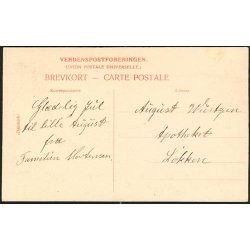 VERDENSPOSTFORENINGEN.
(UNION POSTALE UNIVERSELLE)
BREVKORT – CARTE POSTALE
Glædelig Jul
til lille August
fra
Familien
August
Apotheket
Løkken